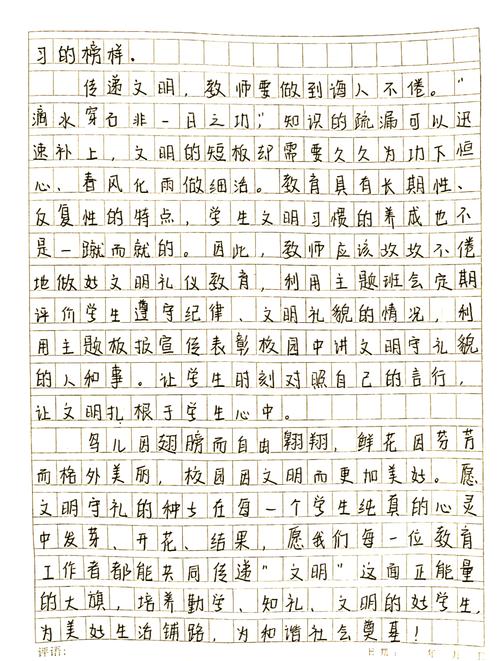 习的榜样.
传递文明，教师要做到诲人不倦。“
滴水穿石非一日之功”，知识的疏漏可以迅
速补上，文明的短板却需要久久为功下恒
心、春风化雨做细活。教育具有长期性、
反复性的特点，学生文明习惯的养成也不
是一蹴而就的。因此，教师应该孜孜不倦
地做好文明礼仪教育，利用主题班会定期
评价学生遵守纪律、文明礼貌的情况，利
用主题板报宣传表彰校园中讲文明守礼貌
的人和事。让学生时刻对照自己的言行，
让文明扎根于学生心中。
鸟儿因翅膀而自由翱翔，鲜花因芬芳
而格外美丽，校园因文明而更加美好。愿
文明守礼的种子在每一个学生纯真的心灵
中发芽、开花、结果，愿我们每一位教育
工作者都能共同传递“文明”这面正能量
的大旗，培养勤学、知礼、文明的好学生，
为美好生活铺路，为和谐社会奠基！
评语： 日期： 年 月 日